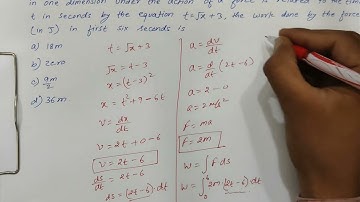 in one dimension under the action of a force is related to the time
t in seconds by the equation t=√x+3, the work done by the force
(in J) in first six seconds is
a) 18m
b) zero
c) 9m/2
d) 36m
t = √x + 3
√x = t - 3
x = (t-3)²
x = t² + 9 - 6t
v = dx/dt
v = 2t + 0 - 6
v = 2t - 6
ds/dt = 2t - 6
ds = (2t-6).dt
a = dv/dt
a = d/dt (2t-6)
a = 2 - 0
a = 2 m/s²
f = ma
f = 2m
w = ∫ f ds
w = ∫₀⁶ 2m (2t-6).dt